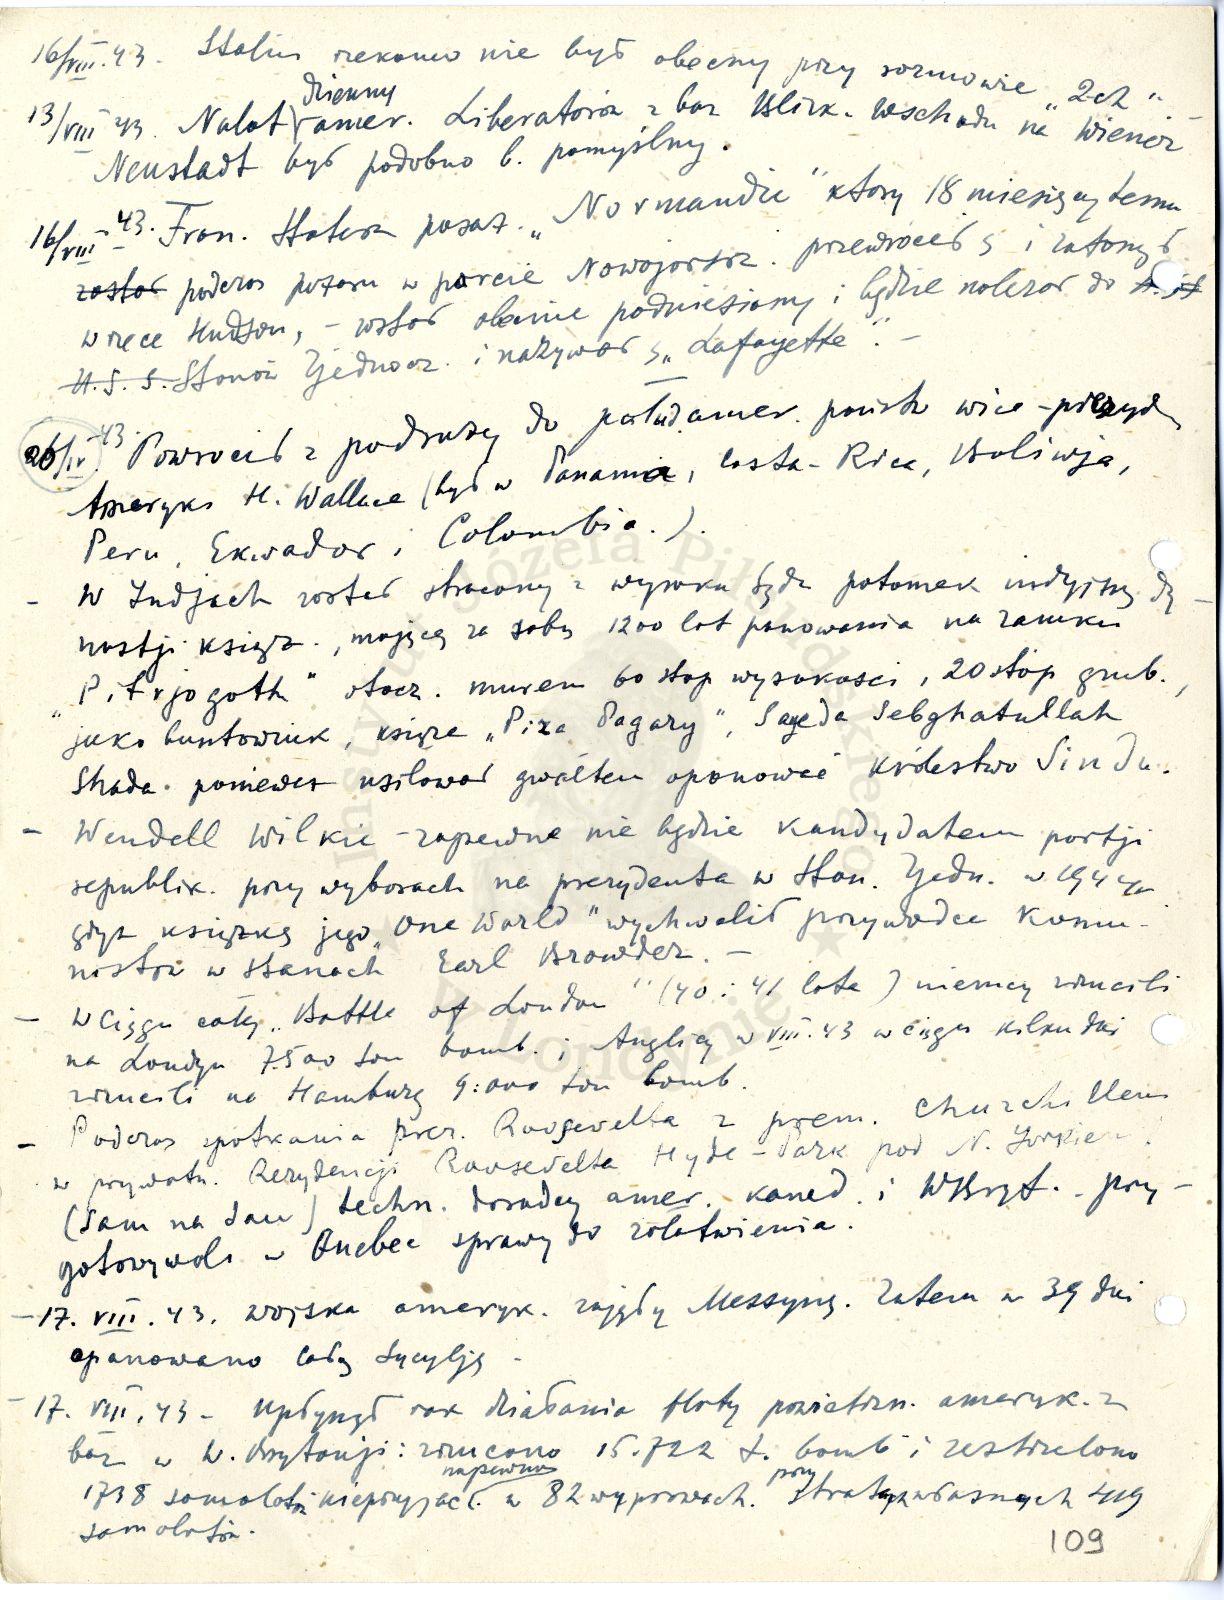 16/VIII.43. Stalin rzekomo nie był obecny przy rozmowie „2-ch"
13/VIII 43. Nalot dzienny amer. Liberatorów z baz Blisk. Wschodu na Wiener
Neustadt był podobno b. pomyślny.
16/VIII 43. Fran. Statek pasaż. „Normandie" który 18 miesięcy temu
został podczas pożaru w porcie Nowojorsk. przewrócił ś i zatonął
w rzece Hudson, – został obecnie podniesiony i będzie należał do
U.S.S. Stanów Zjednocz. i nazywał ś „Lafayette". –
26/IV 43. Powrócił z podróży do połud. amer. państw wice-prezyd.
Ameryki H. Wallace (był w Panamie, Costa-Rica, Boliwja,
Peru, Ekwador i Colombia.).
– W Indjach został stracony z wyroku sądu potomek indyjskiej dy-
nastji książ., mającej za sobą 1200 lat panowania na zamku
„Pitrjogoth" otocz. murem 60 stop wysokości, 20 stop grub.,
jako buntownik, książe „Piza Pagary", Sayeda Sebghatullah
Shada. ponieważ usiłował gwałtem opanować królestwo Sindu.
– Wendell Wilkie – zapewne nie będzie kandydatem partji
republik. przy wyborach na prezydenta w Stan. Zjedn. w 1944 r
gdyż książkę jego „One World" wychwalił przywódca Komu-
nistów w Stanach Earl Browder. –
– W ciągu całej „Battle of London" (40 i 41 lata) niemcy zrzucili
na Londyn 7.500 ton bomb. i Anglicy w VIII.43 w ciągu kilku dni
zrzucili na Hamburg 9.000 ton bomb.
– Podczas spotkania prez. Roosevelta z prem. Churchillem
w prywatn. Rezydencji Roosevelta Hyde-Park pod N. Yorkiem.
(sam na sam) techn. doradcy amer. kanad. i WBryt. – przy-
gotowywali w Quebec sprawy do załatwienia.
– 17. VIII. 43. wojska ameryk. zajęły Messynę. Zatem w 39 dni
opanowano całą Sycylję –
– 17. VIII. 43 – Upłynął rok działania floty powietrzn. ameryk. z
baz w W. Brytanji: zrzucono 15.722 t. bomb i zestrzelono
1738 samolotów napewno nieprzyjac. w 82 wyprawach. przy stratach własnych 419
samolotów.
109
Instytut Józefa Piłsudskiego
w Londynie